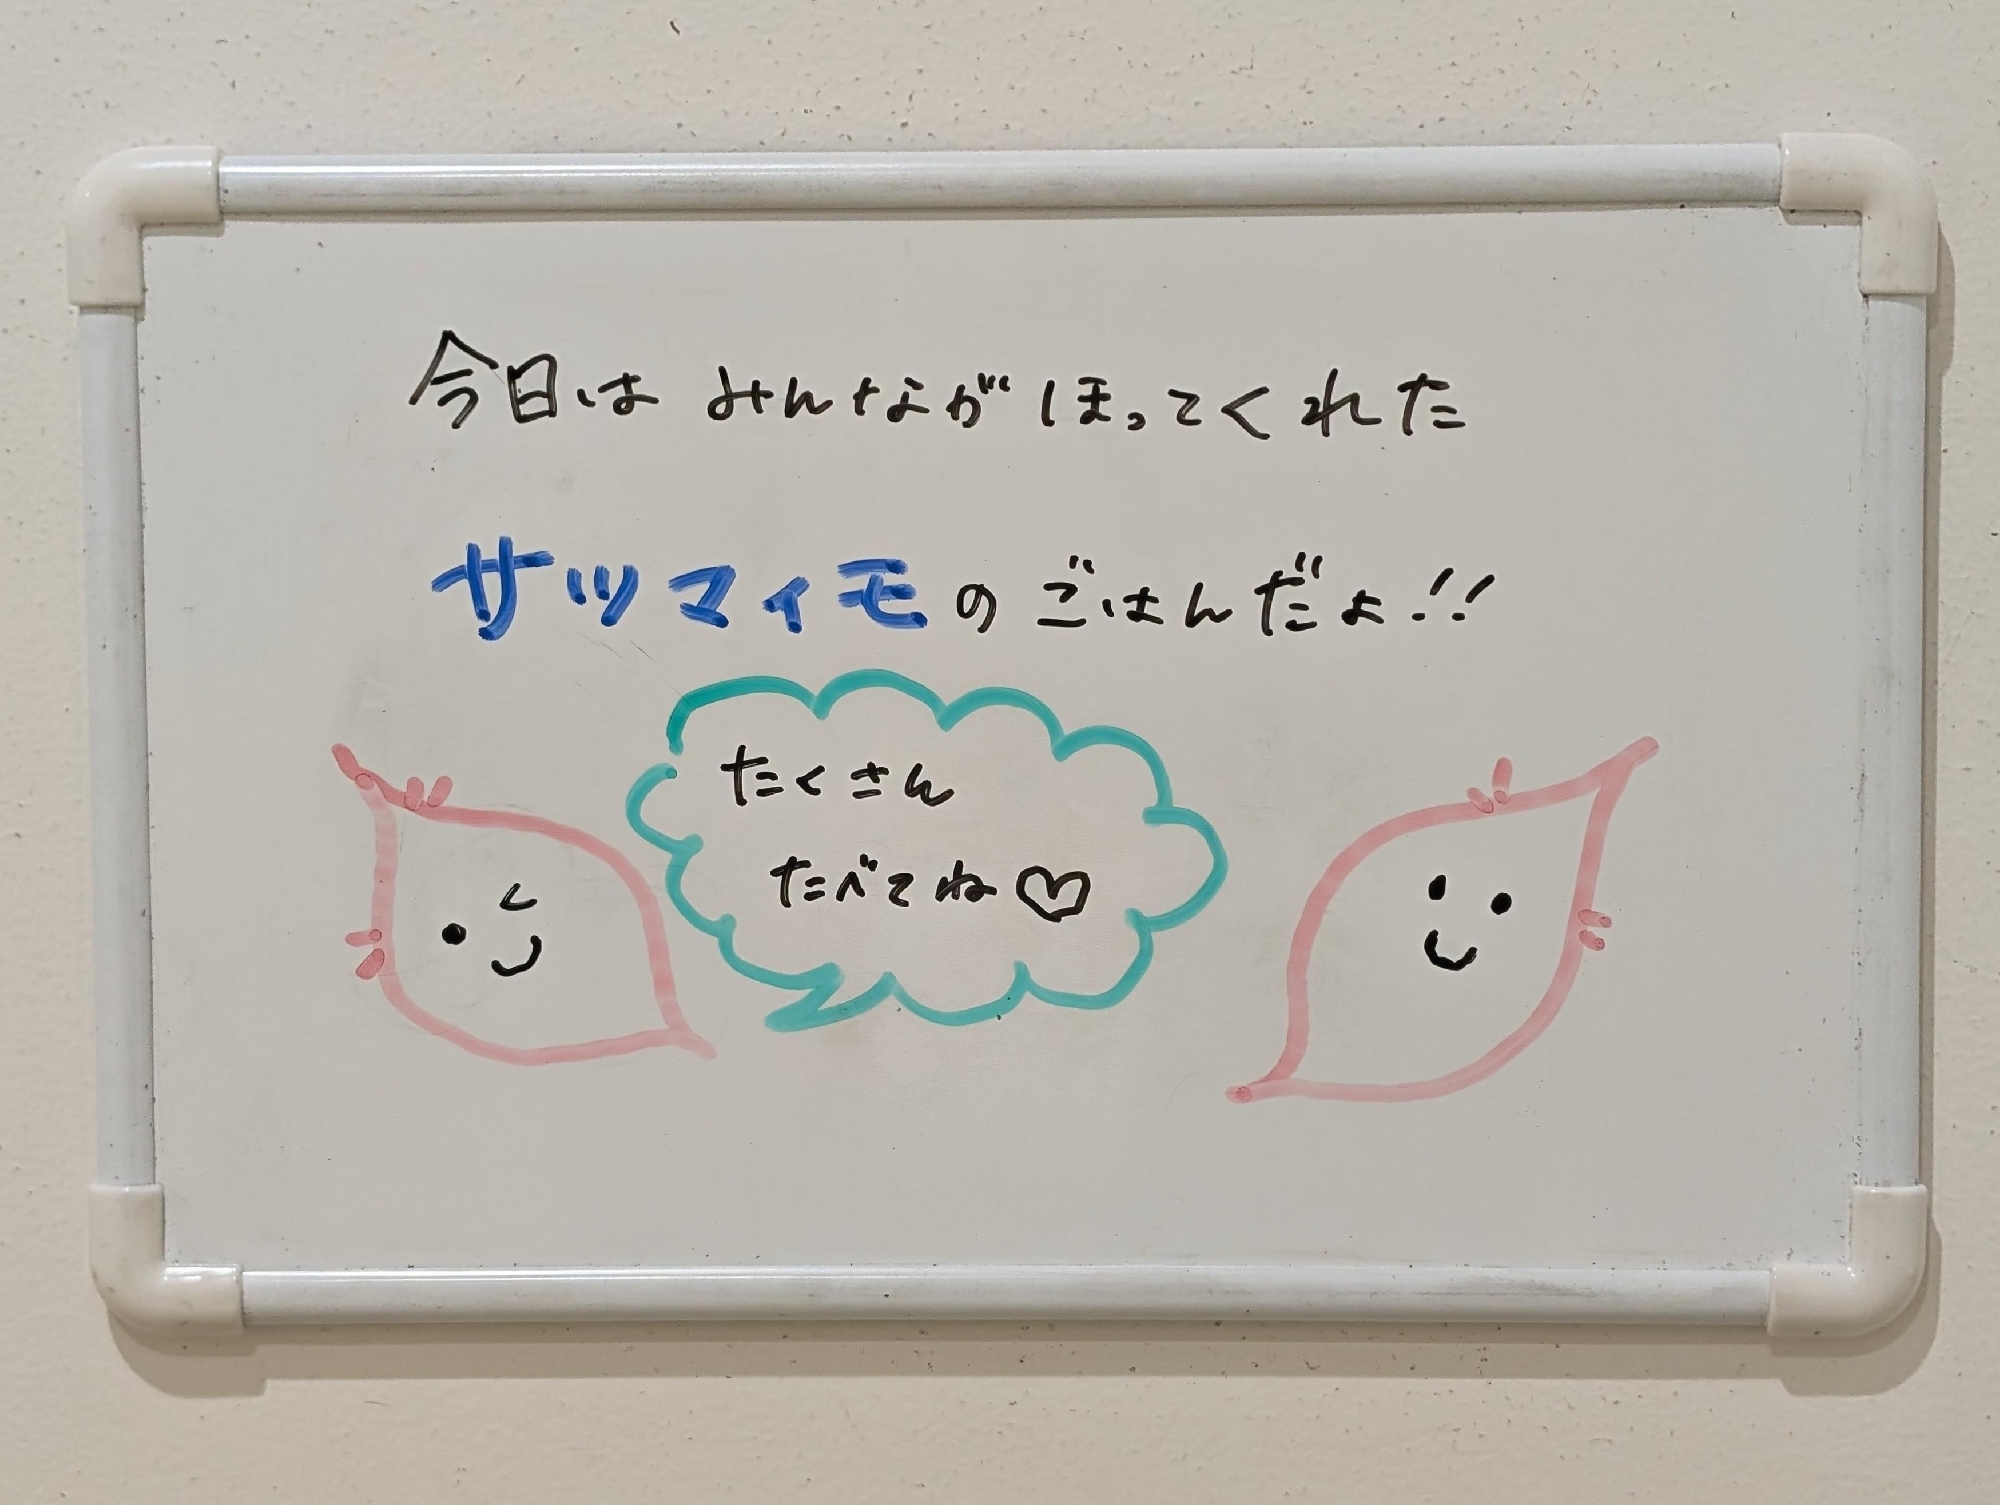 今日は みんなが ほってくれた
サツマイモの ごはんだよ!!
たくさん
たべてね♡